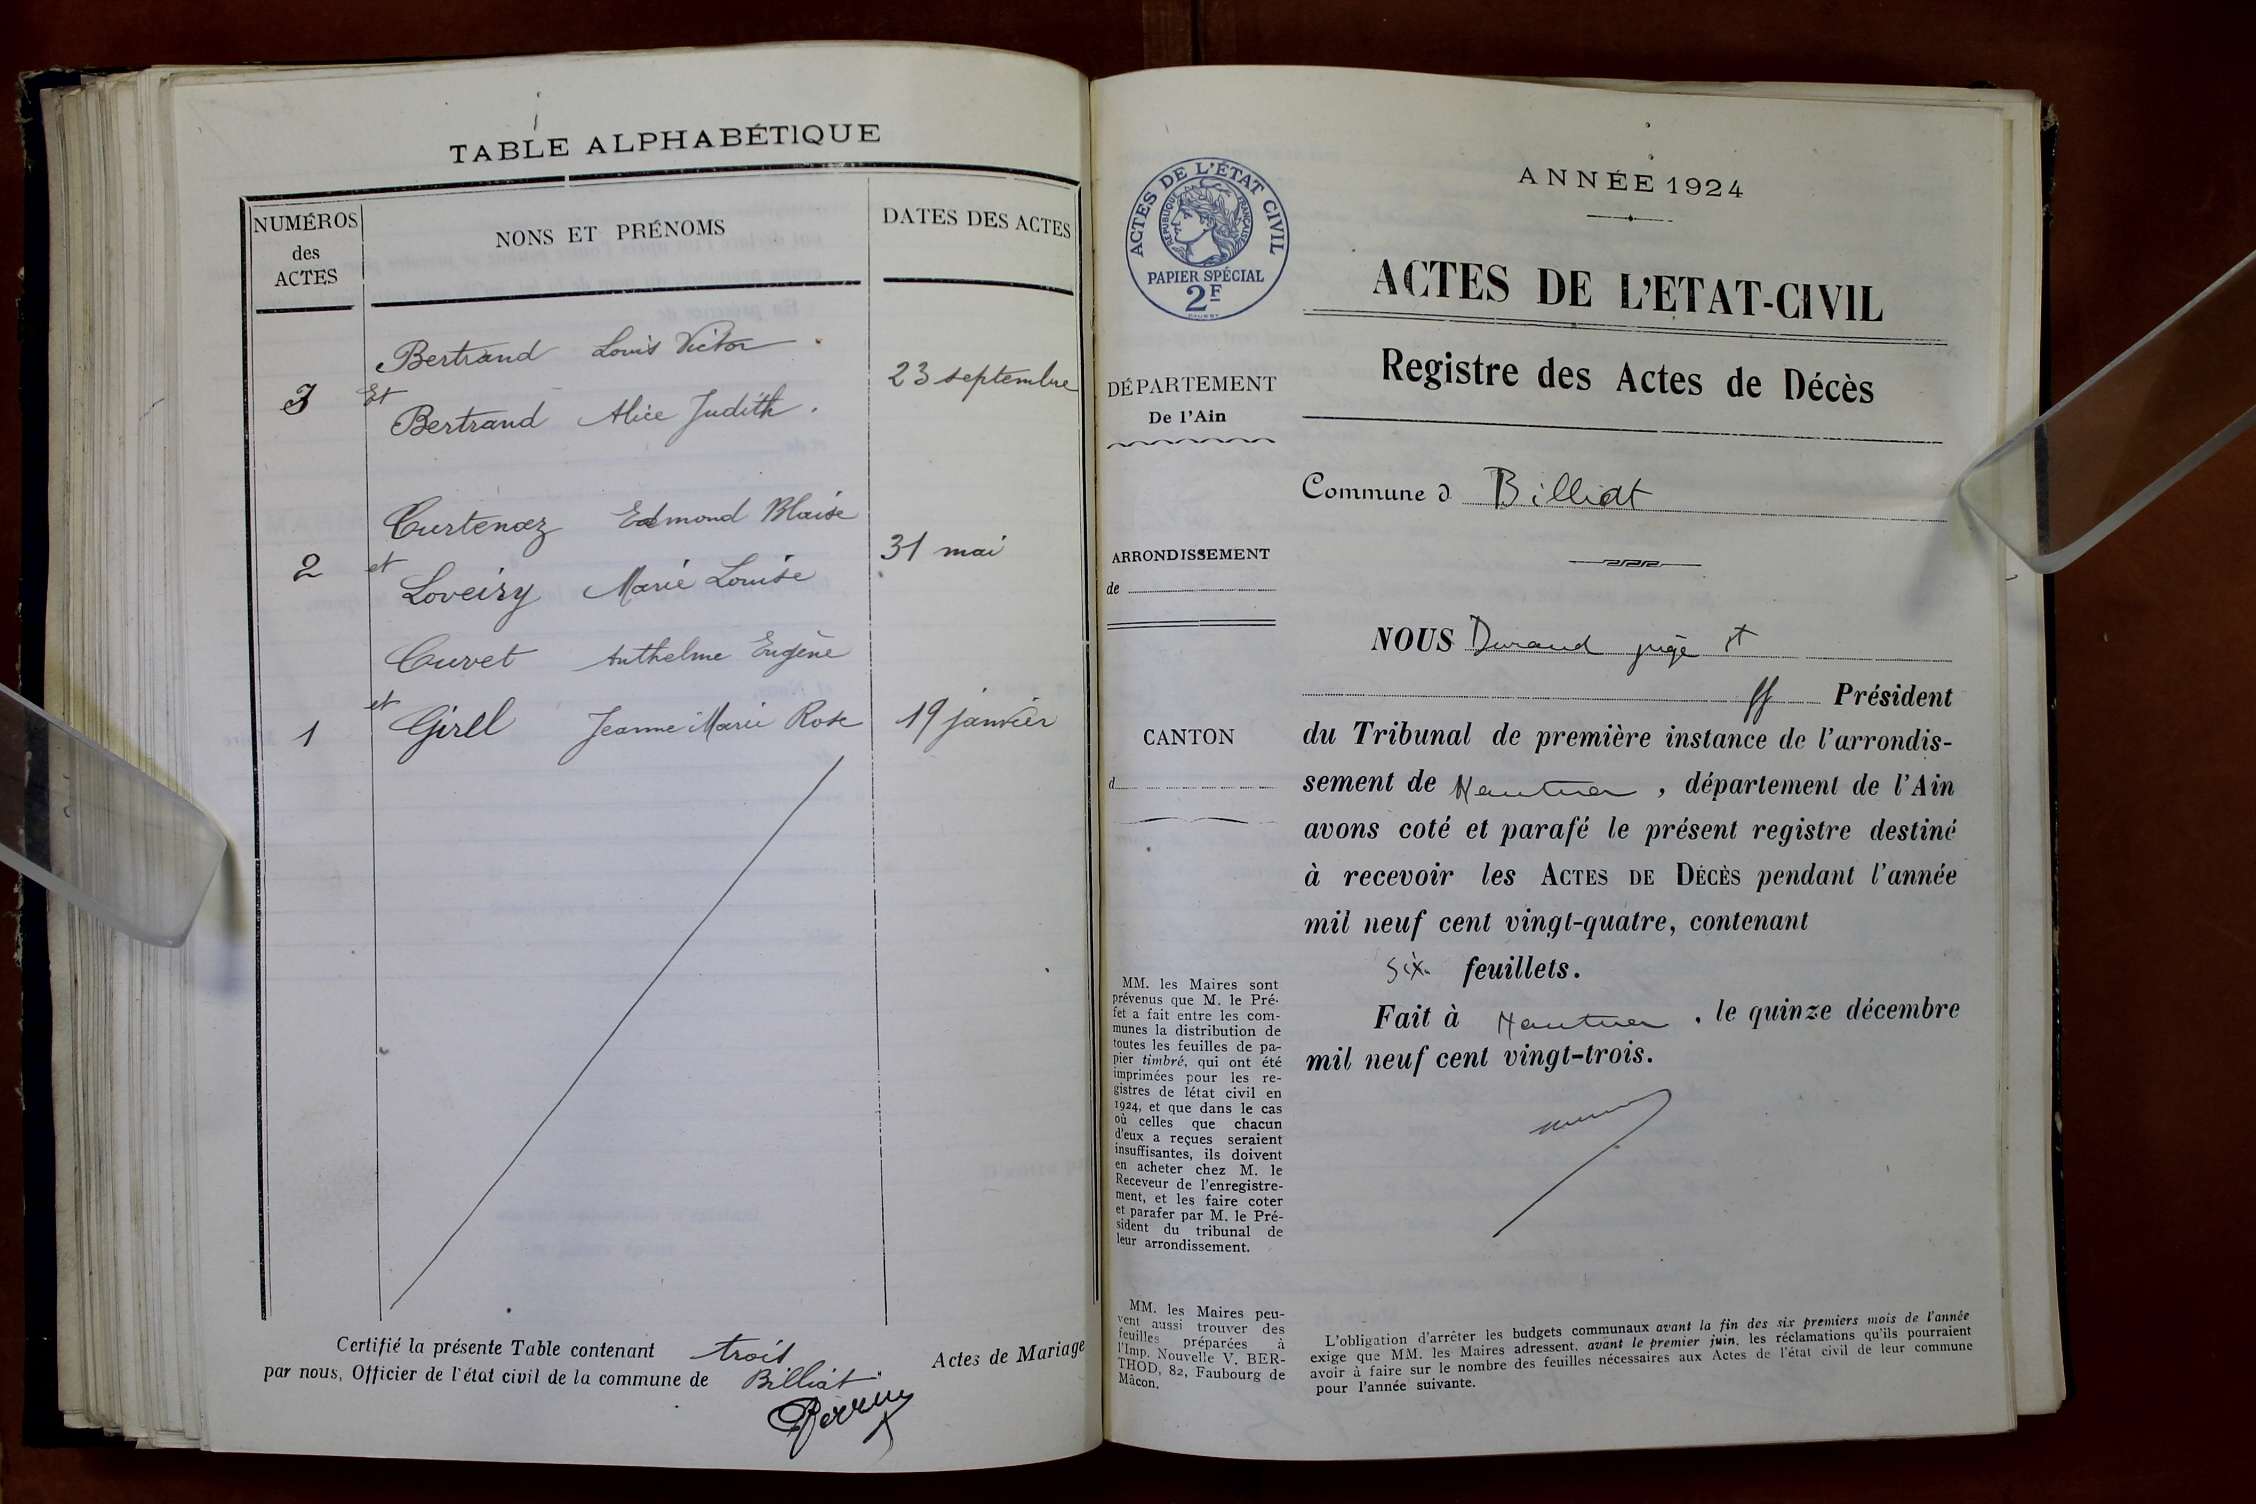 TABLE ALPHABÉTIQUE
NUMÉROS
des
ACTES
NONS ET PRÉNOMS
DATES DES ACTES
Bertrand Louis Victor
3 Et 23 septembre
Bertrand Alice Judith
Curtenaz Edmond Blaise
2 et 31 mai
Loveiry Marie Louise
Cuvet Anthelme Eugène
et
1 Girel Jeanne Marie Rose 19 janvier
Certifié la présente Table contenant trois Actes de Mariage
par nous, Officier de l'état civil de la commune de Billiat
ACTES DE L'ÉTAT CIVIL
RÉPUBLIQUE FRANÇAISE
PAPIER SPÉCIAL
2F
DÉPARTEMENT
De l'Ain
ARRONDISSEMENT
de
CANTON
d
MM. les Maires sont
prévenus que M. le Pré-
fet a fait entre les com-
munes la distribution de
toutes les feuilles de pa-
pier timbré, qui ont été
imprimées pour les re-
gistres de létat civil en
1924, et que dans le cas
où celles que chacun
d'eux a reçues seraient
insuffisantes, ils doivent
en acheter chez M. le
Receveur de l'enregistre-
ment, et les faire coter
et parafer par M. le Pré-
sident du tribunal de
leur arrondissement.
MM. les Maires peu-
vent aussi trouver des
feuilles préparées à
l'Imp. Nouvelle V. BER-
THOD, 82, Faubourg de
Mâcon.
ANNÉE 1924
ACTES DE L'ETAT-CIVIL
Registre des Actes de Décès
Commune d Billiat
NOUS Durand juge
ff Président
du Tribunal de première instance de l'arrondis-
sement de Nantua, département de l'Ain
avons coté et parafé le présent registre destiné
à recevoir les ACTES DE DÉCÈS pendant l'année
mil neuf cent vingt-quatre, contenant
six feuillets.
Fait à Nantua, le quinze décembre
mil neuf cent vingt-trois.
L'obligation d'arrêter les budgets communaux avant la fin des six premiers mois de l'année
exige que MM. les Maires adressent, avant le premier juin, les réclamations qu'ils pourraient
avoir à faire sur le nombre des feuilles nécessaires aux Actes de l'état civil de leur commune
pour l'année suivante.